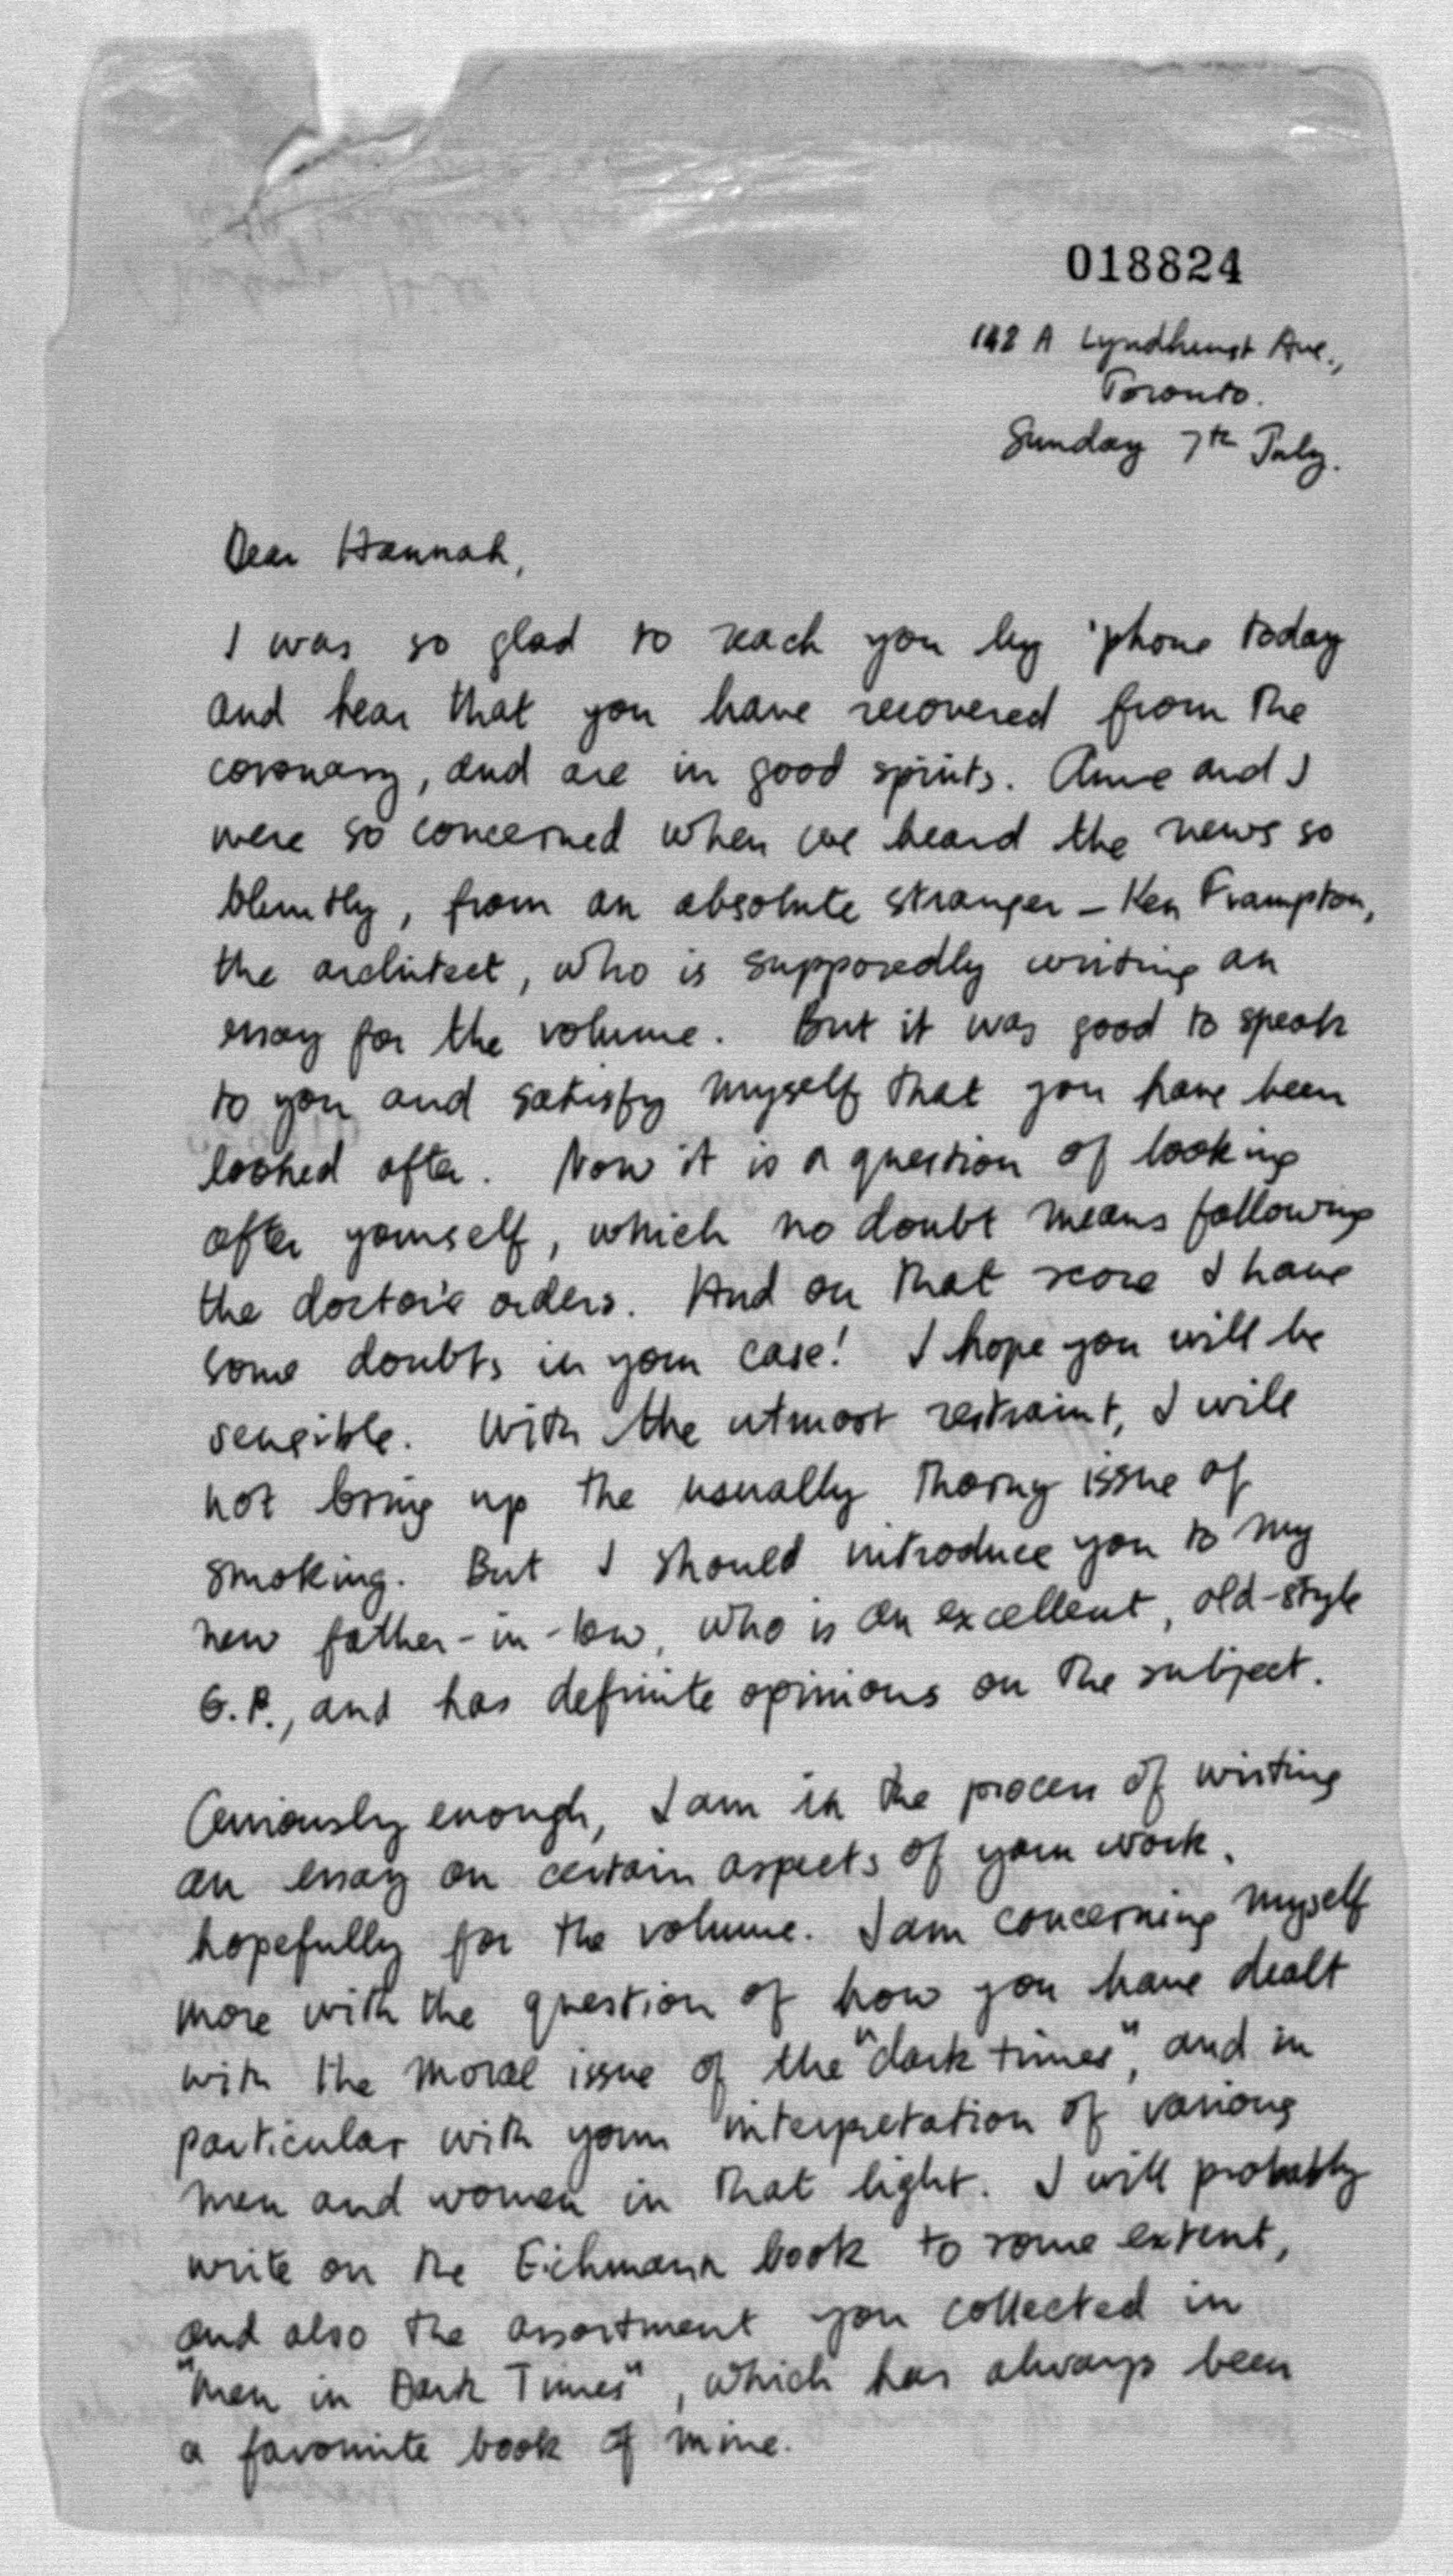 018824
142 A Lyndhurst Ave.,
Toronto.
Sunday 7th July.
Dear Hannah,
I was so glad to reach you by 'phone today
and hear that you have recovered from the
coronary, and are in good spirits. Anne and I
were so concerned when we heard the news so
bluntly, from an absolute stranger - Ken Frampton,
the architect, who is supposedly writing an
essay for the volume. But it was good to speak
to you and satisfy myself that you have been
looked after. Now it is a question of looking
after yourself, which no doubt means following
the doctor's orders. And on that score I have
some doubts in your case! I hope you will be
sensible. With the utmost restraint, I will
not bring up the usually thorny issue of
smoking. But I should introduce you to my
new father-in-law, who is an excellent, old-style
G.P., and has definite opinions on the subject.
Curiously enough, I am in the process of writing
an essay on certain aspects of your work,
hopefully for the volume. I am concerning myself
more with the question of how you have dealt
with the moral issue of the "dark times", and in
particular with your interpretation of various
men and women in that light. I will probably
write on the Eichmann book to some extent,
and also the assortment you collected in
"Men in Dark Times", which has always been
a favourite book of mine.